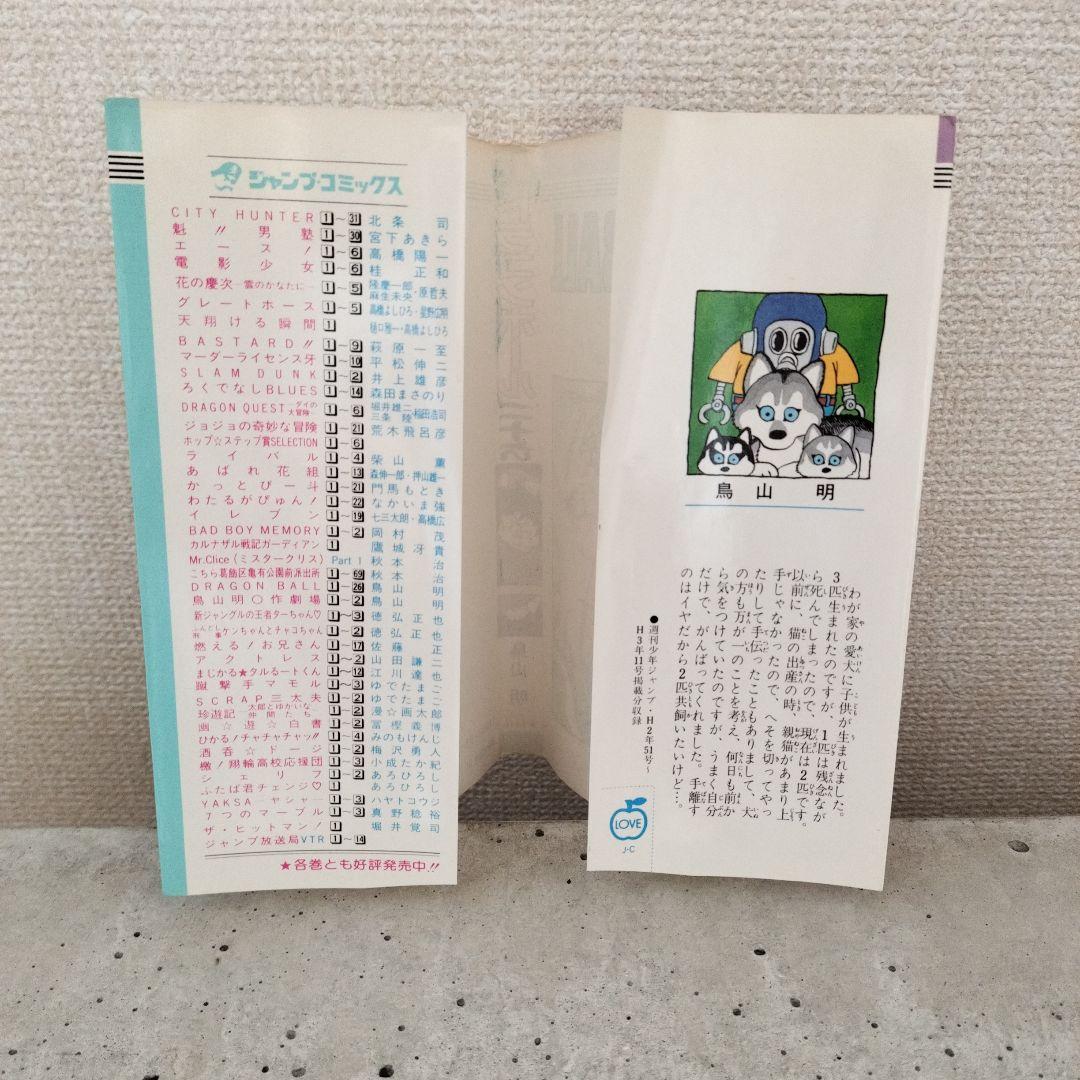 ジャンプ・コミックス
CITY HUNTER 1〜31 北条 司
魁!!男塾 1〜30 宮下あきら
エース! 1〜6 高橋陽一
電影少女 1〜6 桂 正和
花の慶次―雲のかなたに― 1〜5 隆慶一郎・原哲夫 麻生未央
グレートホース 1〜5 高橋よしひろ・星野広明
天翔ける瞬間 1 樋口雅一・高橋よしひろ
BASTARD!! 1〜9 萩原一至
マーダーライセンス牙 1〜10 平松伸二
SLAM DUNK 1〜2 井上雄彦
ろくでなしBLUES 1〜14 森田まさのり
DRAGON QUEST―ダイの大冒険― 1〜6 堀井雄二 三条 陸・稲田浩司
ジョジョの奇妙な冒険 1〜21 荒木飛呂彦
ホップ☆ステップ賞SELECTION 1〜6
ライバル 1〜4 柴山 薫
あばれ花組 1〜13 森伸一郎・押山雄一
かっとび一斗 1〜21 門馬もとき
わたるがぴゅん! 1〜22 なかいま強
イレブン 1〜19 七三太朗・高橋広
BAD BOY MEMORY 1〜2 岡村 茂
カルナザル戦記ガーディアン 1 鷹城冴貴
Mr.Clice(ミスタークリス) Part 1 秋本 治
こちら葛飾区亀有公園前派出所 1〜69 秋本 治
DRAGON BALL 1〜26 鳥山 明
鳥山明〇作劇場 1〜2 鳥山 明
新ジャングルの王者ターちゃん♡ 1〜3 徳弘正也
ふんどし刑事ケンちゃんとチャコちゃん 1〜2 徳弘正也
燃える!お兄さん 1〜17 佐藤 正
アクトレス 1〜2 山田謙二
まじかる★タルるートくん 1〜12 江川達也
蹴撃手マモル 1〜3 ゆでたまご
SCRAP三太夫 1〜2 ゆでたまご
珍遊記―太郎とゆかいな仲間たち― 1〜2 漫☆画太郎
幽☆遊☆白書 1〜2 冨樫義博
ひかる!チャチャチャッ!! 1〜4 みのもけんじ
酒呑☆ドージ 1〜2 梅沢勇人
檄!翔輪高校応援団 1〜3 小成たか紀
シェリフ 1〜2 あろひろし
ふたば君チェンジ♡ 1 あろひろし
YAKSA―ヤシャ― 1〜3 ハヤトコウジ
7つのマーブル 1〜3 真野稔裕
ザ・ヒットマン! 1 堀井覚司
ジャンプ放送局VTR 1〜14
★各巻とも好評発売中!!
鳥山 明
わが家の愛犬に子供が生まれました。
3匹生まれたのですが、1匹は残念なが
ら死んでしまったので、現在は2匹です。
以前に、猫の出産の時、親猫があまり上
手じゃなかったので、へそを切ってやっ
たりして手伝ったこともありまして、犬
の方も万が一のことを考え、何日も前か
ら気をつけていたのですが、うまく自分
だけで、がんばってくれました。手離す
のはイヤだから2匹共飼いたいけど…。
●週刊少年ジャンプ・H2年51号〜
H3年11号掲載分収録
LOVE
J・C